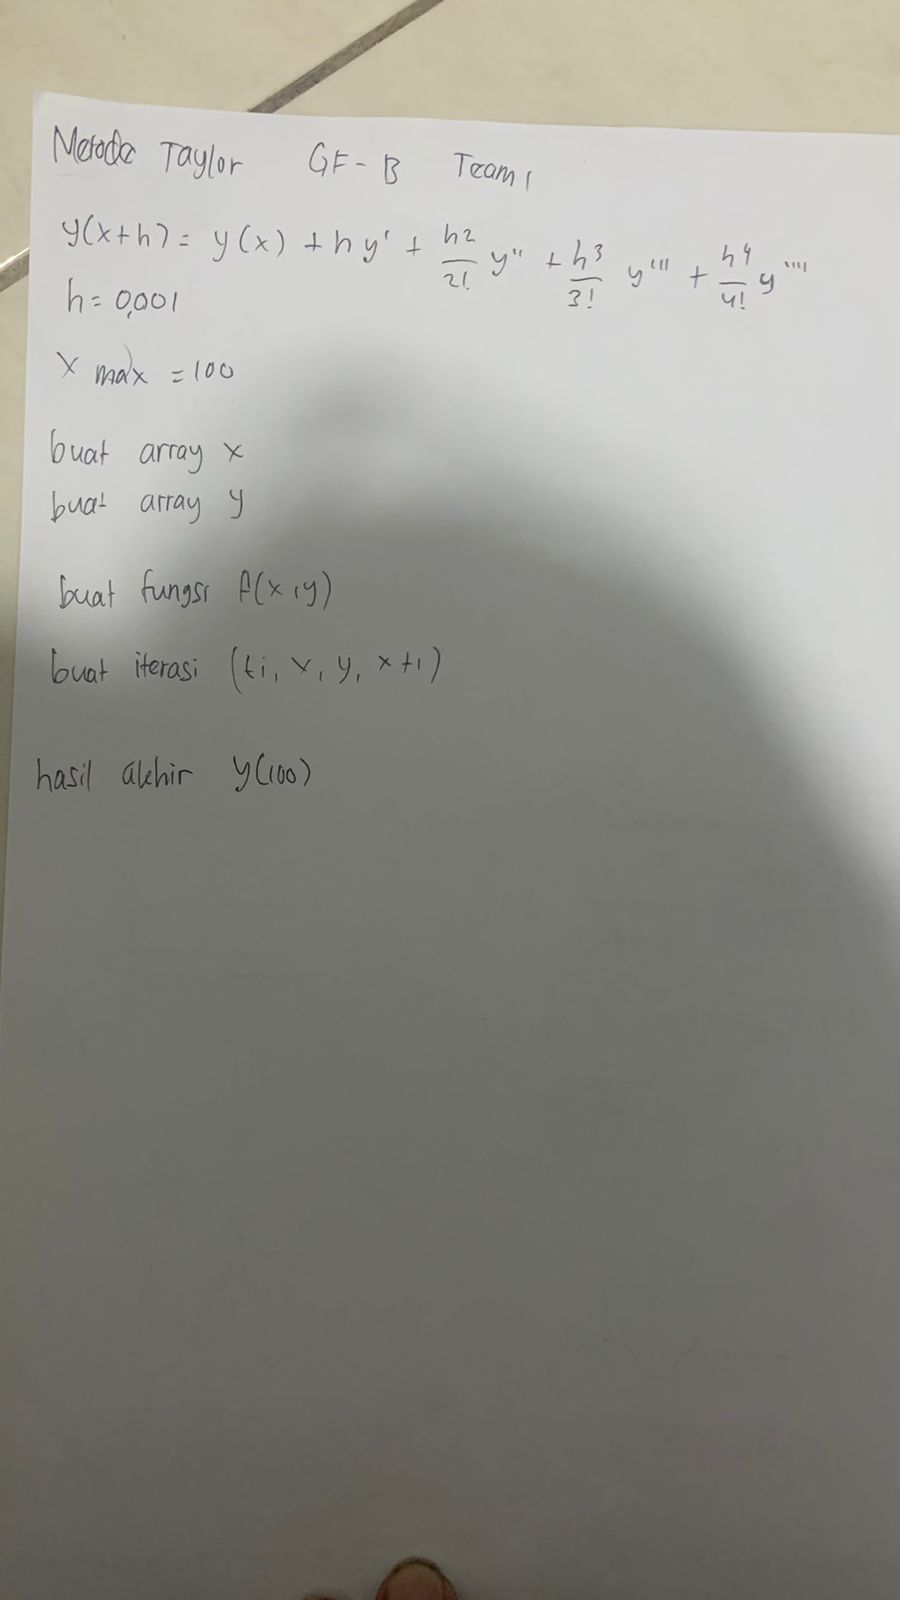 Metode Taylor GF-B Team 1
y(x+h) = y(x) + h y' + h2/2! y'' + h3/3! y''' + h4/4! y''''
h = 0,001
x max = 100
buat array x
buat array y
buat fungsi f(x,y)
buat iterasi (ti, x, y, x+1)
hasil akhir y(100)